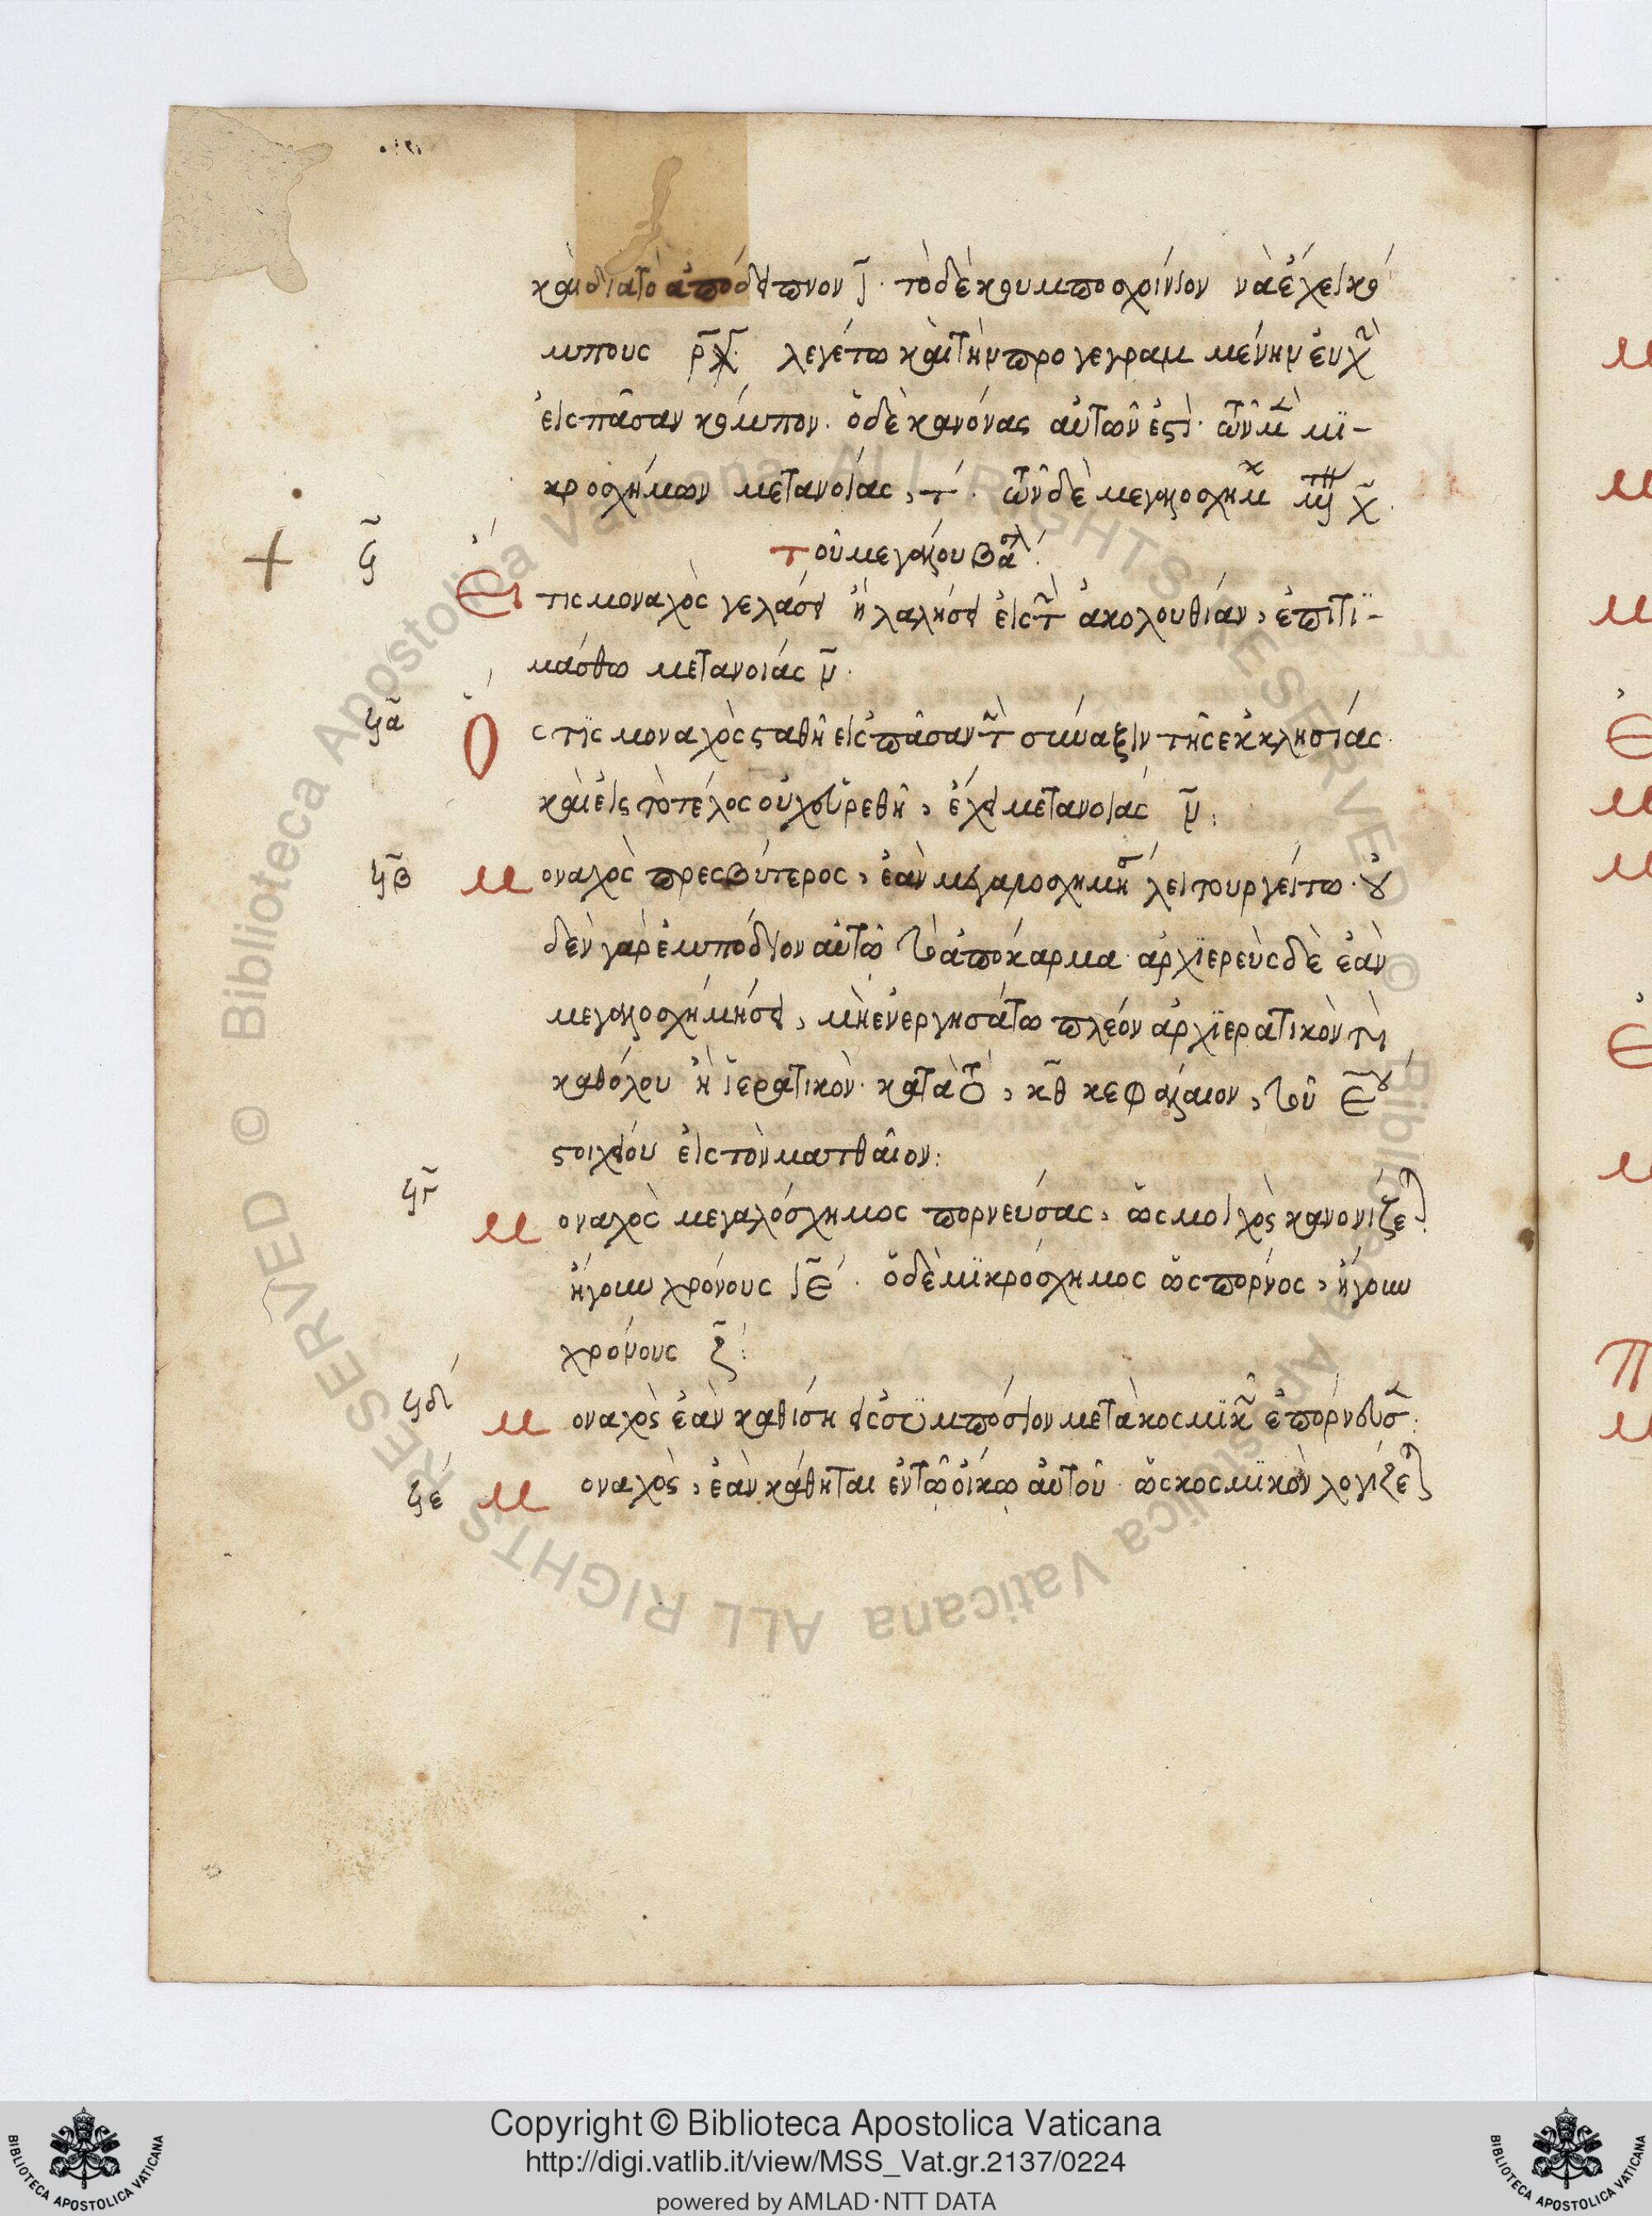 καὶ διατὸ ἀπόδειπνον ῑ. τὸ δὲ κομποσχοίνιον νὰ ἔχει κό
μπους ρ̄γ̄. λεγέτω καὶ τὴν προγεγραμμένην ἐυχ̀
εἰς πᾶσαν κόμπον. ὁ δὲ κανόνας αὐτῶν ἐστὶ. τῶν μ̀ μϊ-
κροσχήμων μετανοίας, τ. τῶν δὲ μεγαλοσχημ χ̄.
τοῦ μεγάλου βασλ
ϟ̄ Εἴ τις μοναχὸς γελάσει ἢ λαλήσει εἰς τ̀ ἀκολουθίαν, ἐπιτι-
μάσθω μετανοιάς ν̄.
ϟᾱ Ὅς τὶς μοναχὸς σταθῆ εἰς πᾶσαν τ̀ σύναξιν τῆς ἐκκλησίας
καὶ εἰς τὸ τέλος οὐχ εὑρεθῆ, ἔχει μετανοίας ν̄:
ϟβ̄ Μοναχὸς πρεσβύτερος, ἐὰν μεγαλοσχημη λειτουργείτω. οὐ
δὲν γὰρ ἐμπόδιον αὐτῶ τὸ ἀπόκαρμα. ἀρχϊερεὺς δὲ ἐὰν
μεγαλοσχήμήσει, μὴ ἐνεργησάτω πλέον ἀρχϊερατικὸν τὶ
καθόλου ἢ ἱερατικὸν. κατὰ τὸ, κ̄θ κεφάλαιον, τοῦ Ε̄ου
στοιχείου εἰς τὸν ματθαῖον:
ϟγ̄ Μοναχὸς μεγαλόσχημος πορνεύσας, ὡς μοιχὸς κανονίζε
ἤγουν χρόνους ιε̄. ὁ δὲ μϊκρόσχημος ὡς πόρνος, ἤγουν
χρόνους ζ̄:
ϟδ Μοναχὸς ἐὰν καθίση εἰς συμπόσιον μετὰ κοσμϊκ ἐπόρνευσ:
ϟε Μοναχὸς, ἐὰν κάθηται ἐν τῶ οἴκω αὐτοῦ. ὡς κοσμϊκὸν λογίζε
Copyright © Biblioteca Apostolica Vaticana
http://digi.vatlib.it/view/MSS_Vat.gr.2137/0224
powered by AMLAD·NTT DATA